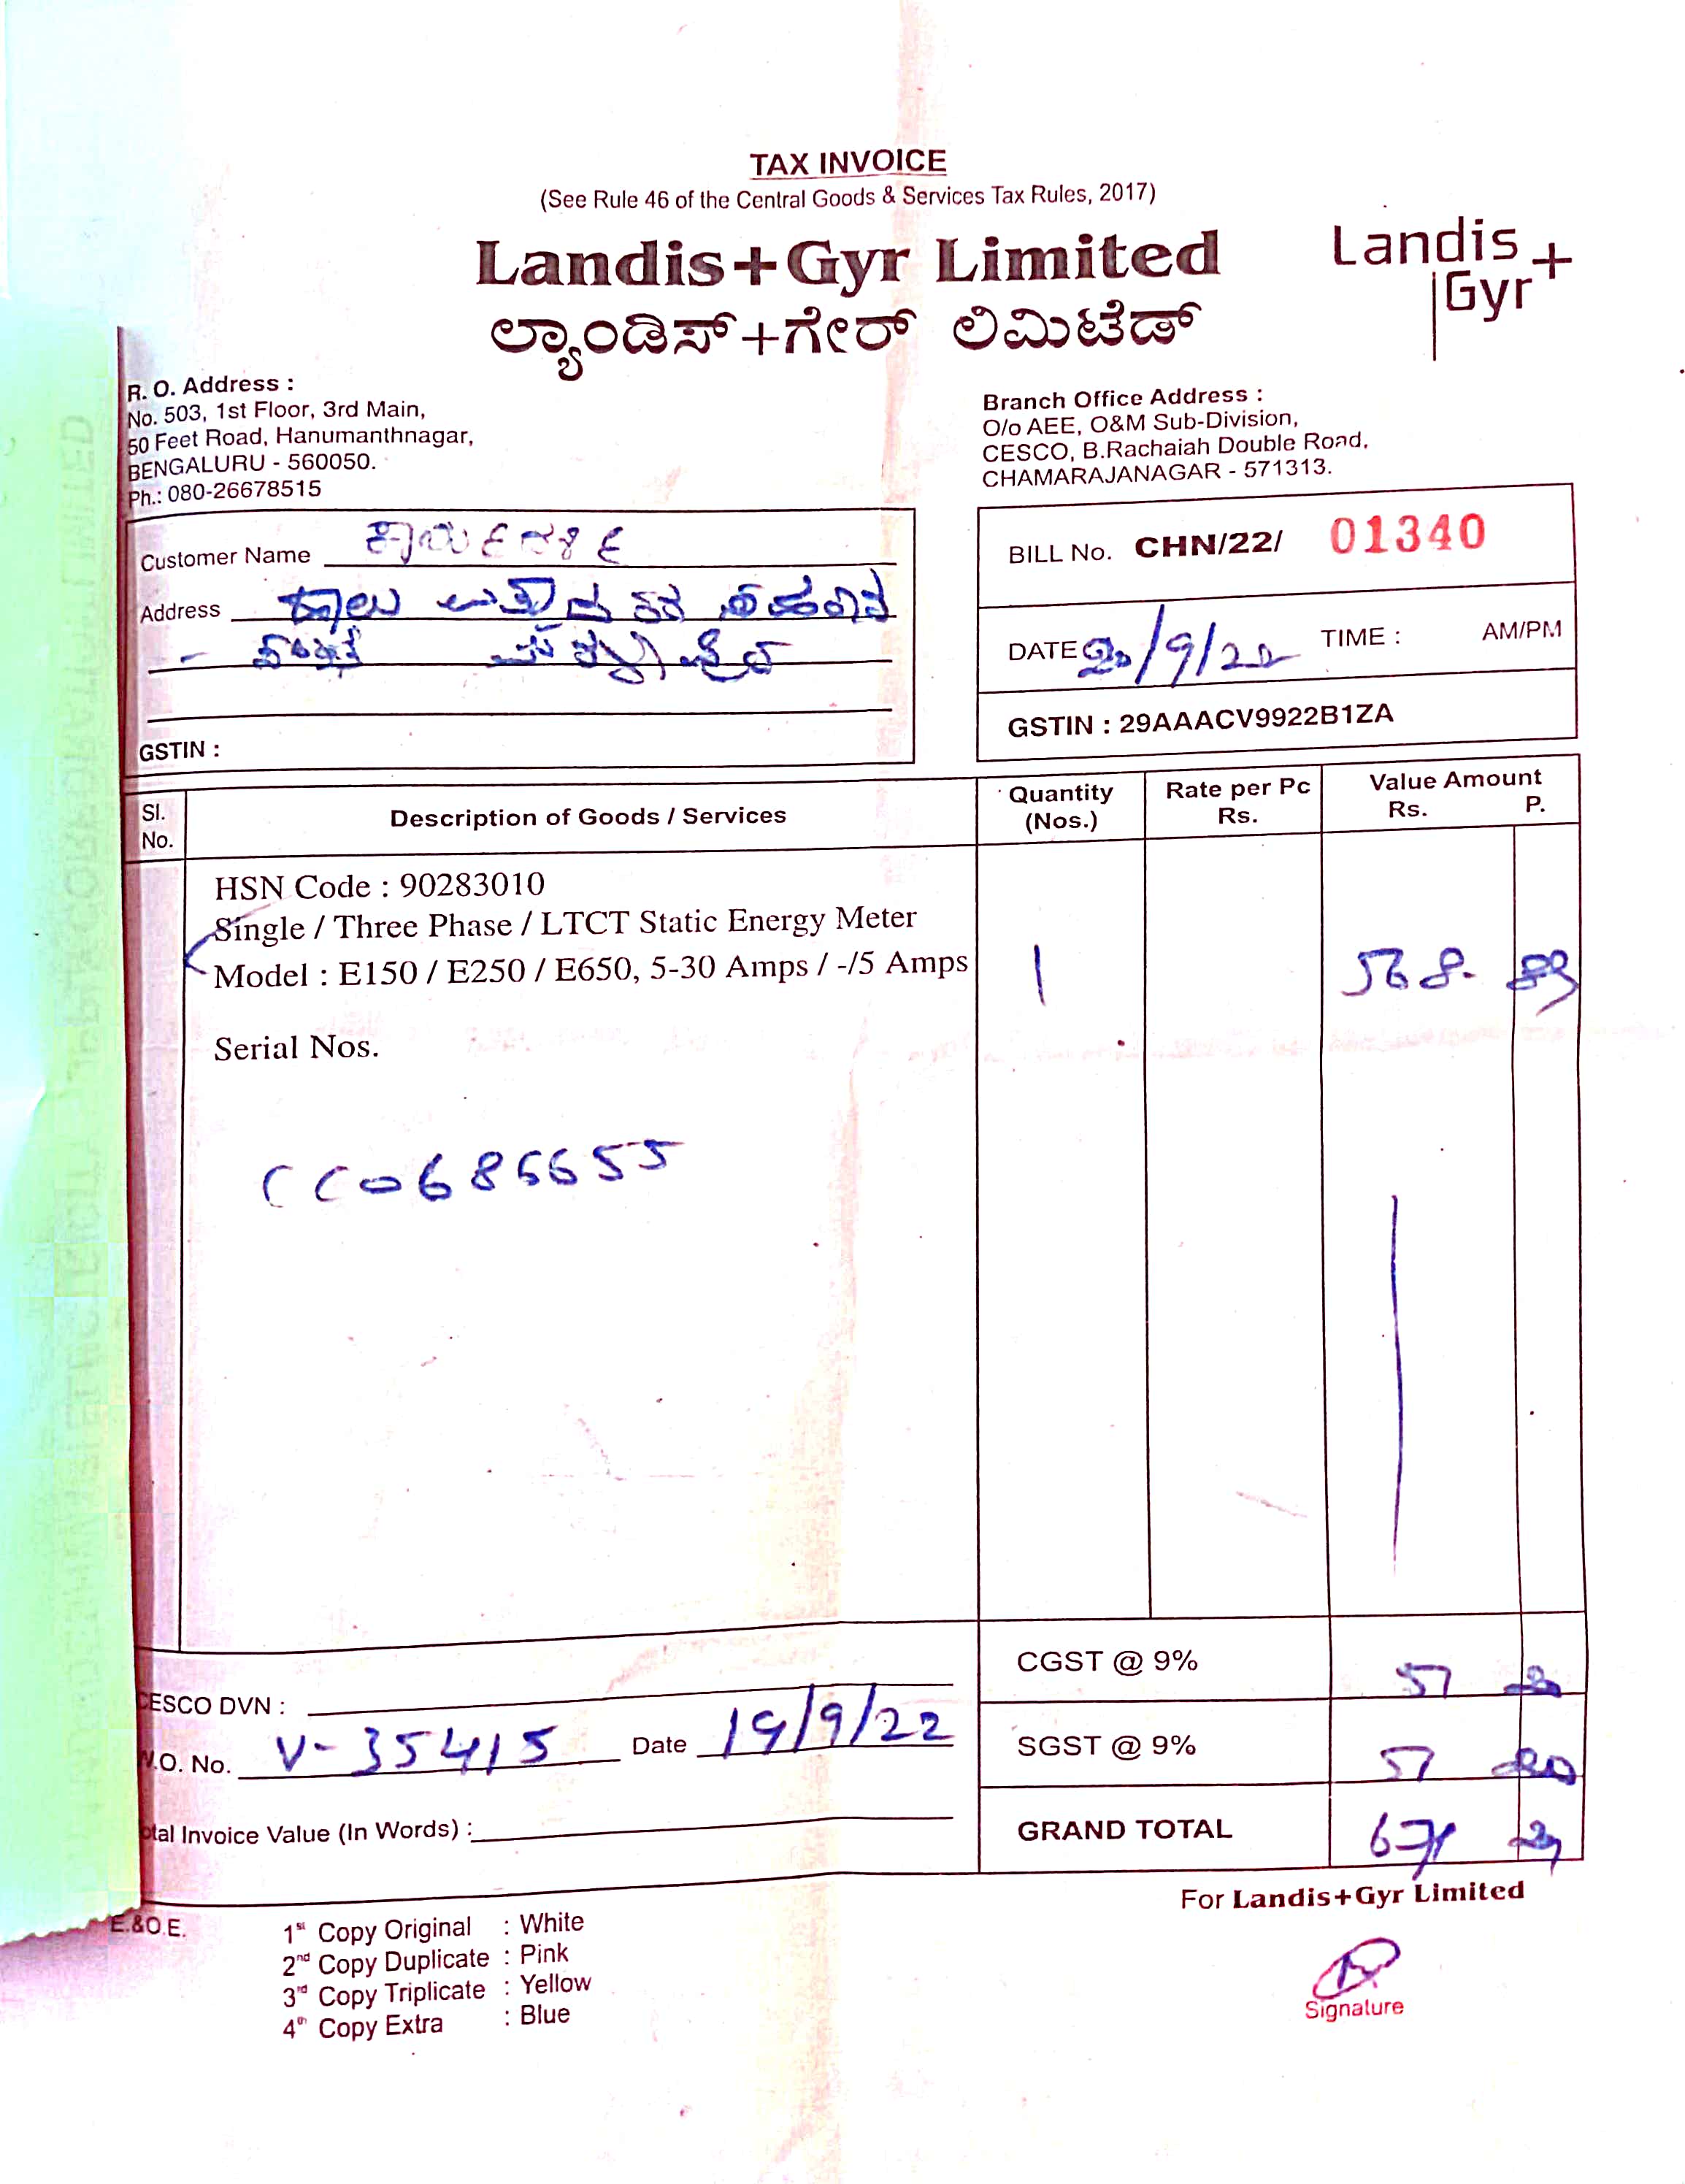 TAX INVOICE
(See Rule 46 of the Central Goods & Services Tax Rules, 2017)
Landis+Gyr Limited
ಲ್ಯಾಂಡಿಸ್+ಗೇರ್ ಲಿಮಿಟೆಡ್
Landis+
Gyr
R. O. Address :
No. 503, 1st Floor, 3rd Main,
50 Feet Road, Hanumanthnagar,
BENGALURU - 560050.
Ph.: 080-26678515
Branch Office Address :
O/o AEE, O&M Sub-Division,
CESCO, B.Rachaiah Double Road,
CHAMARAJANAGAR - 571313.
Customer Name ಕಾರ್ಯದರ್ಶಿ
Address ಹಾಲು ಉತ್ಪಾದಕರ
GSTIN :
BILL No. CHN/22/ 01340
DATE 20/9/22 TIME : AM/PM
GSTIN : 29AAACV9922B1ZA
Sl. No. Description of Goods / Services Quantity (Nos.) Rate per Pc Rs. Value Amount Rs. P.
HSN Code : 90283010
Single / Three Phase / LTCT Static Energy Meter
Model : E150 / E250 / E650, 5-30 Amps / -/5 Amps 1 568. 89
Serial Nos.
CC0686655
CGST @ 9% 51 20
SGST @ 9% 51 20
GRAND TOTAL 671 29
ESCO DVN :
.O. No. V-35415 Date 19/9/22
tal Invoice Value (In Words) :
For Landis+Gyr Limited
Signature
E.&O.E.
1st Copy Original : White
2nd Copy Duplicate : Pink
3rd Copy Triplicate : Yellow
4th Copy Extra : Blue